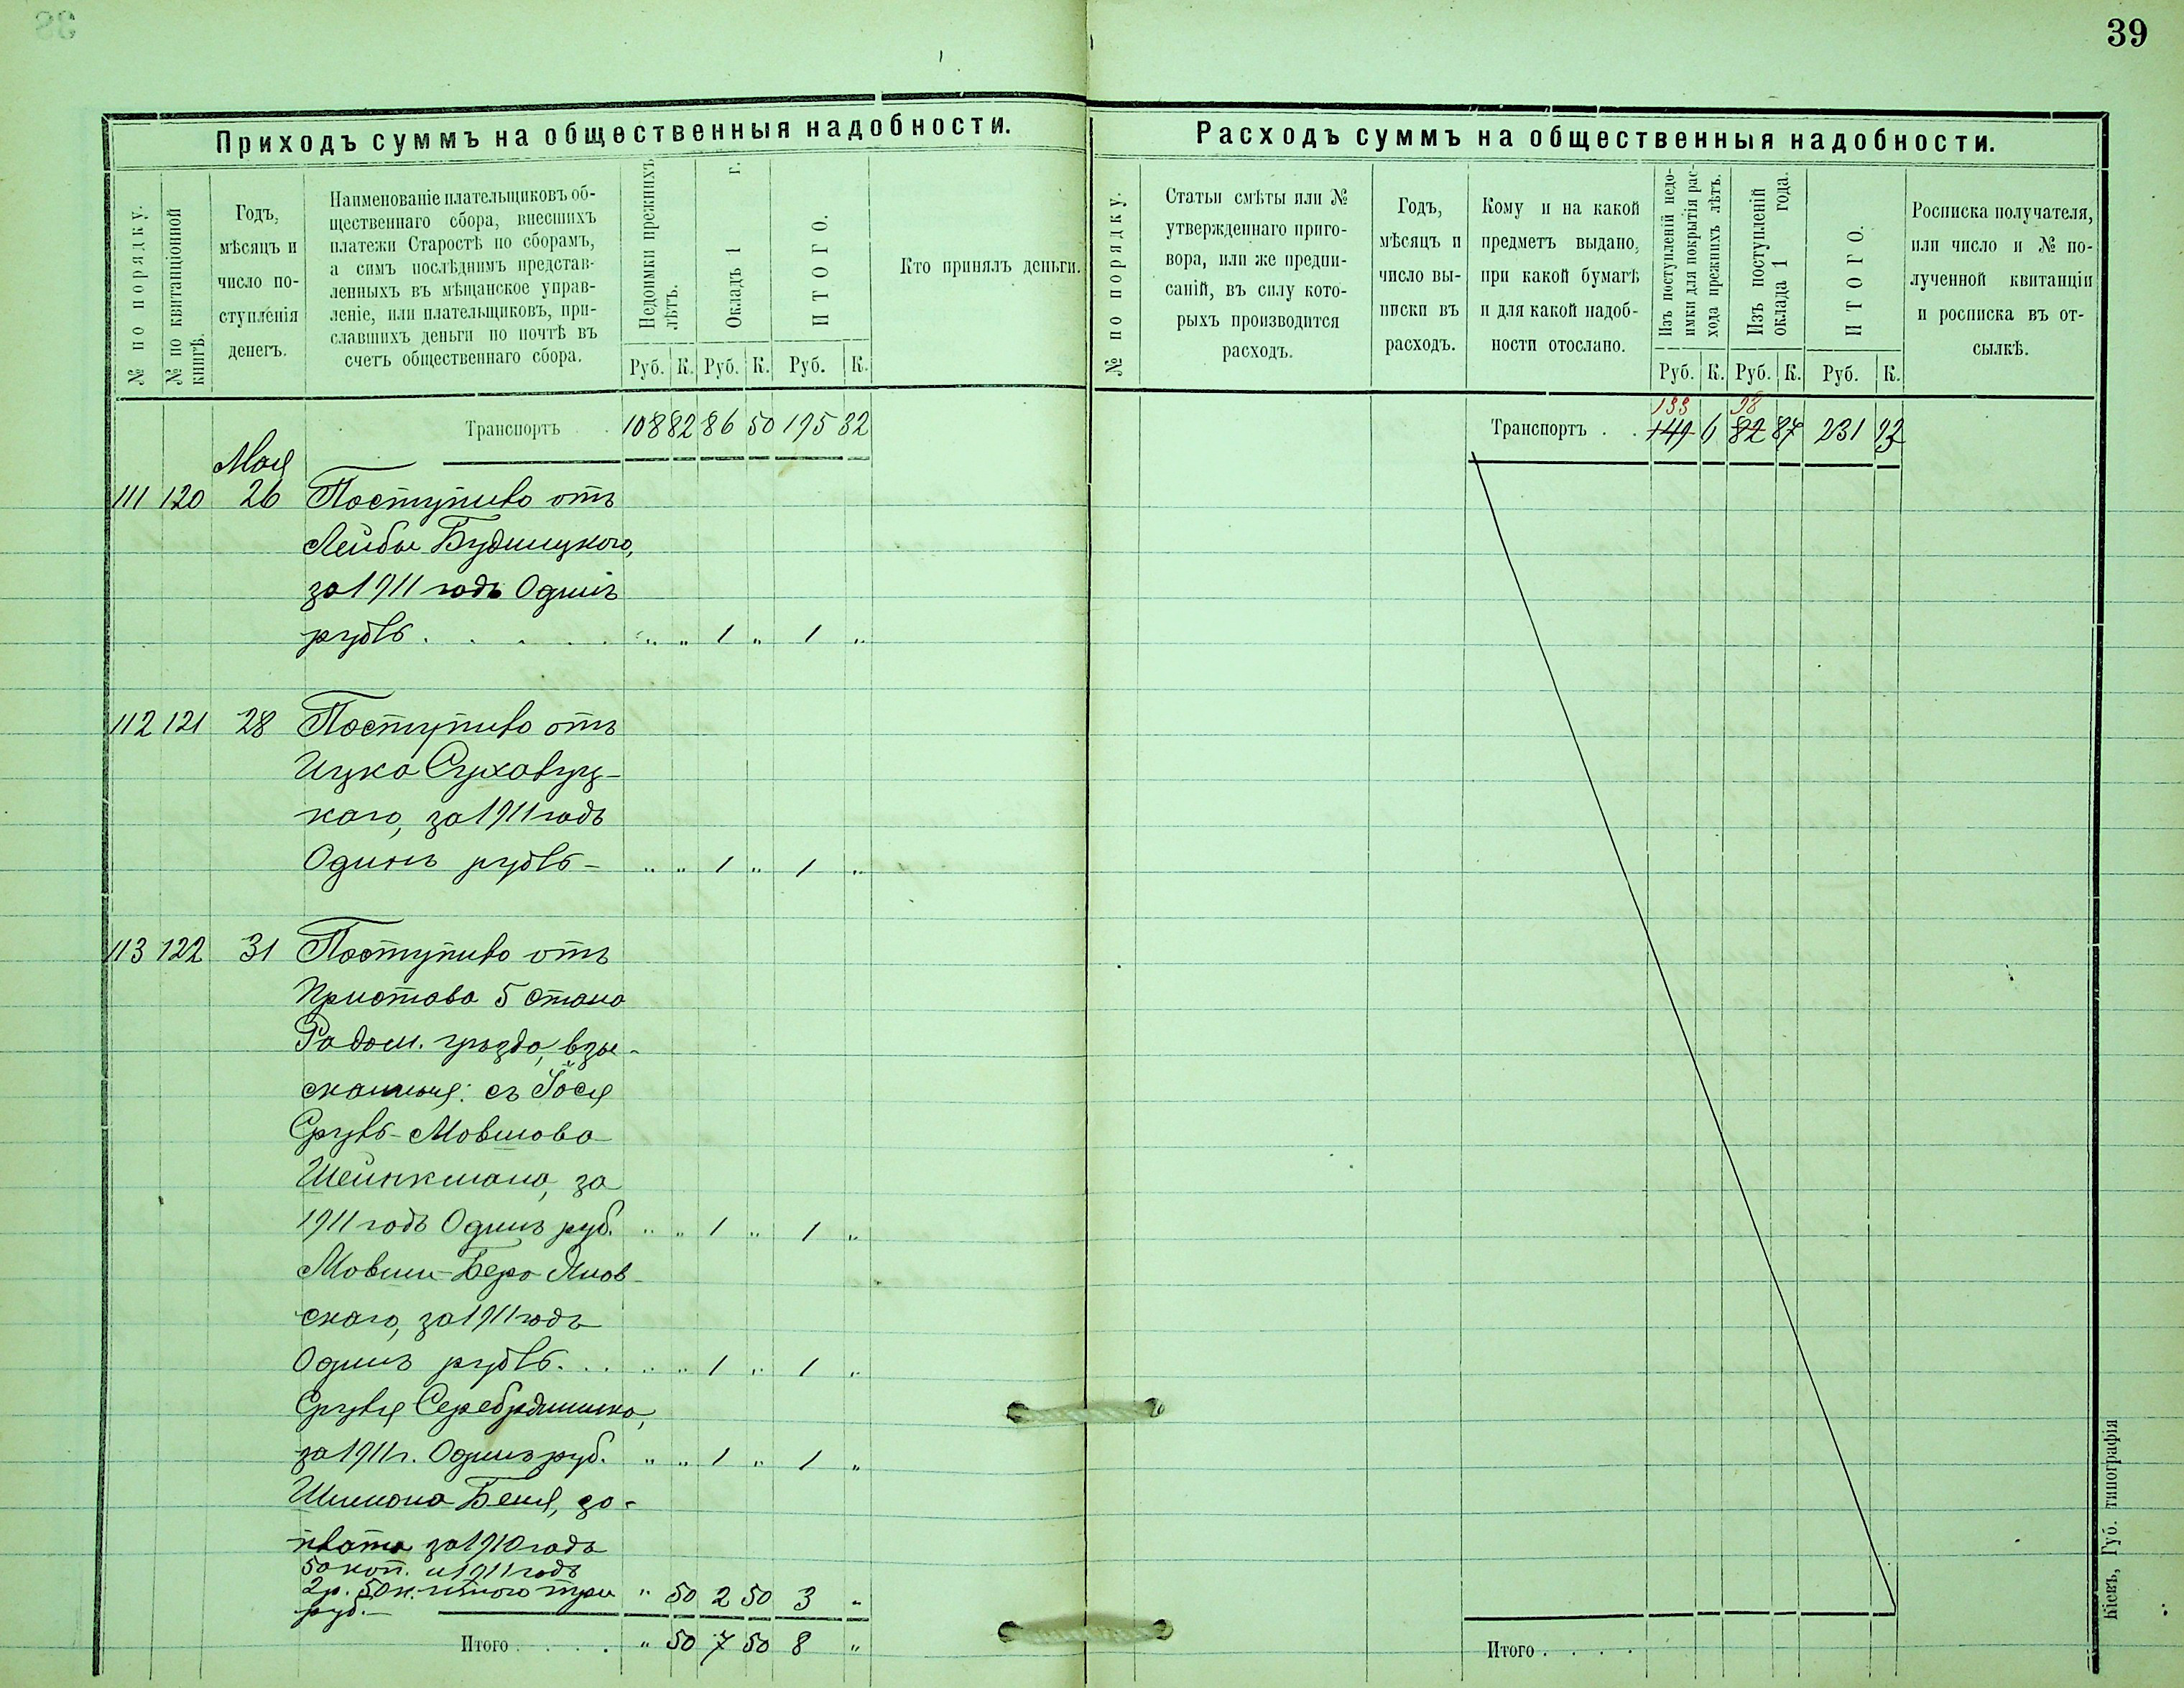 39
Приходъ суммъ на общественныя надобности.
№ по порядку.
№ по квитанціонной
книгѣ.
Годъ,
мѣсяцъ и
число по-
ступленія
денегъ.
Наименованіе плательщиковъ об-
щественнаго сбора, внесшихъ
платежи Старостѣ по сборамъ,
а симъ послѣднимъ представ-
ленныхъ въ мѣщанское управ-
леніе, или плательщиковъ, при-
славшихъ деньги по почтѣ въ
счетъ общественнаго сбора.
Недоимки прежнихъ
лѣтъ.
Окладъ 1 г.
ИТОГО.
Руб. К. Руб. К. Руб. К.
Кто принялъ деньги.
Транспортъ . . 108 82 86 50 195 32
Мая
111 120 26 Поступило отъ
Лейбы Будницкого,
за 1911 годъ Одинъ
рубль . . . . . " " 1 " 1 "
112 121 28 Поступило отъ
Ицка Суховуц-
каго, за 1911 годъ
Одинъ рубль - " " 1 " 1 "
113 122 31 Поступило отъ
Пристава 5 стана
Радом. уѣзда, взы-
сканныя: съ Іося
Сруль-Мовшова
Шейнкмана, за
1911 годъ Одинъ руб. " " 1 " 1 "
Мовши-Бера Янов-
скаго, за 1911 годъ
Одинъ рубль . . . " " 1 " 1 "
Сруля Серебряника,
за 1911 г. Одинъ руб. " " 1 " 1 "
Шимона Беня, за-
плата за 1910 годъ
50 коп. и 1911 годъ
2 р. 50 к. итого три " 50 2 50 3 "
руб. -
Итого . . . . " 50 7 50 8 "
Расходъ суммъ на общественныя надобности.
№ по порядку.
Статьи смѣты или №
утвержденнаго приго-
вора, или же предпи-
саній, въ силу кото-
рыхъ производится
расходъ.
Годъ,
мѣсяцъ и
число вы-
писки въ
расходъ.
Кому и на какой
предметъ выдано,
при какой бумагѣ
и для какой надоб-
ности отослано.
Изъ поступленій недо-
имки для покрытія рас-
хода прежнихъ лѣтъ.
Изъ поступленій
оклада 1 года.
ИТОГО.
Руб. К. Руб. К. Руб. К.
Росписка получателя,
или число и № по-
лученной квитанціи
и росписка въ от-
сылкѣ.
133 98
Транспортъ . . 149 6 82 87 231 93
Итого . . . .
Кіевъ, Губ. типографія